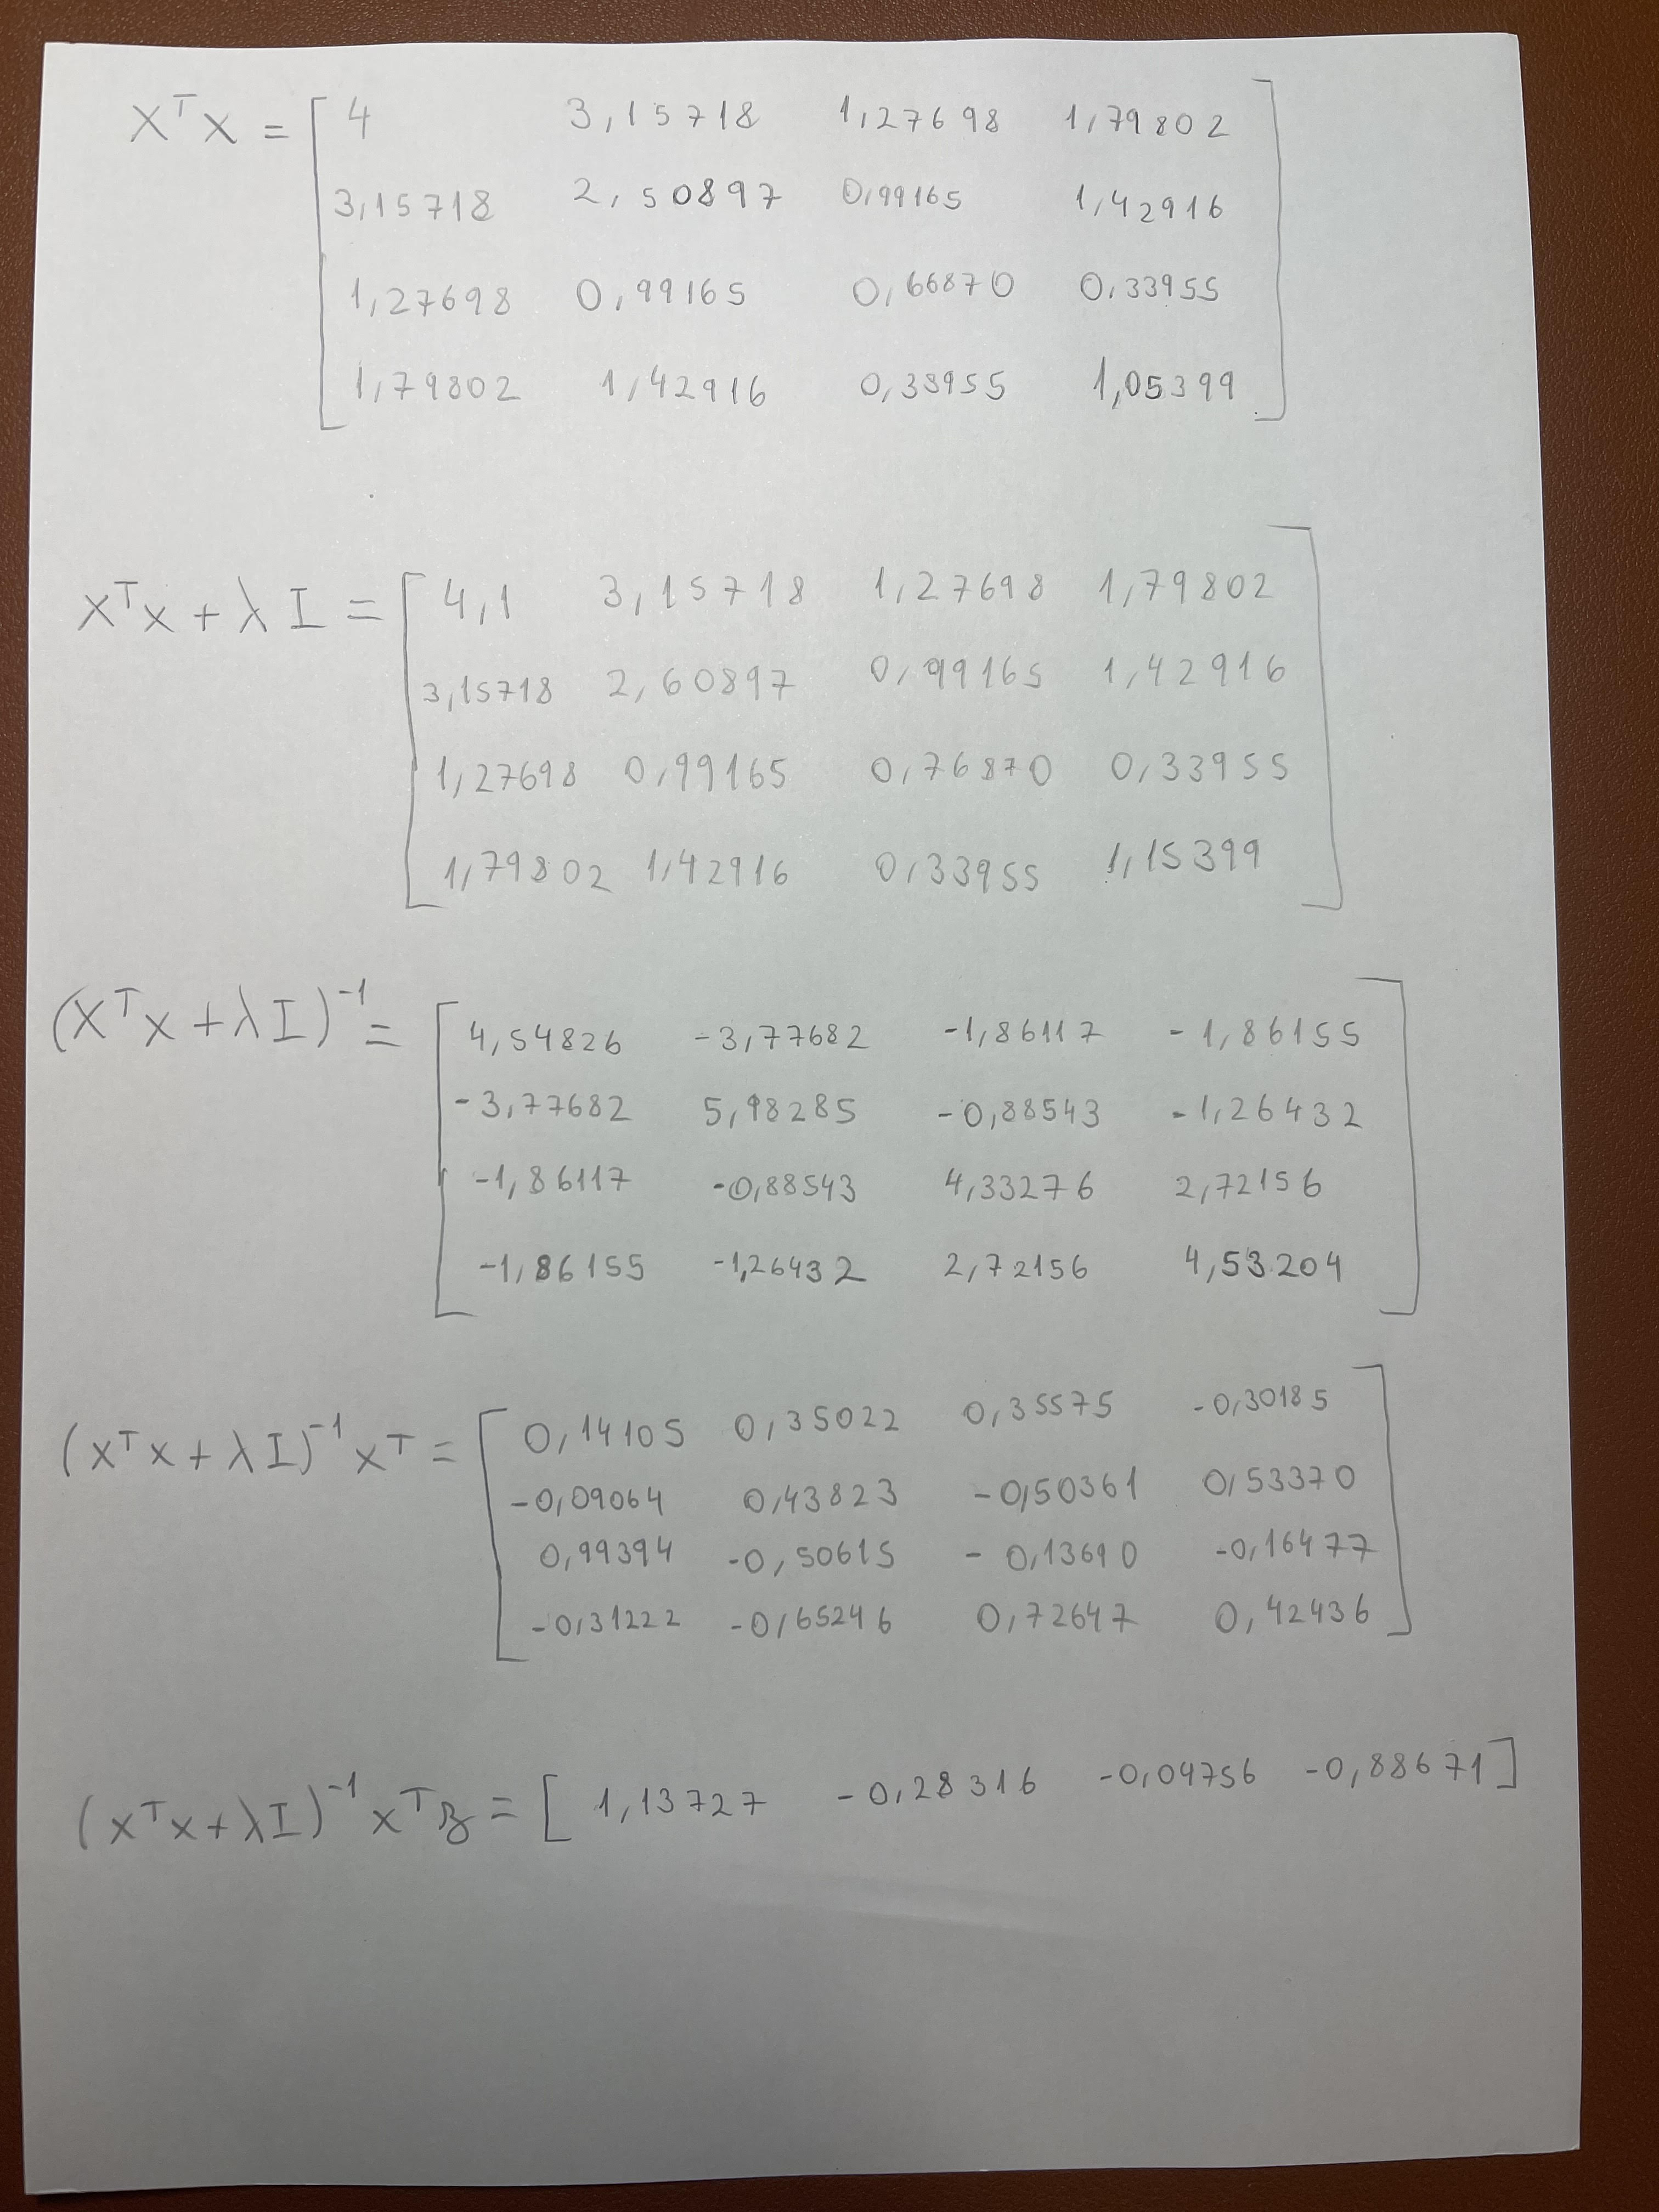 XᵀX = [ 4 3,15718 1,27698 1,79802
3,15718 2,50897 0,99165 1,42916
1,27698 0,99165 0,66870 0,33955
1,79802 1,42916 0,33955 1,05399 ]
XᵀX + λI = [ 4,1 3,15718 1,27698 1,79802
3,15718 2,60897 0,99165 1,42916
1,27698 0,99165 0,76870 0,33955
1,79802 1,42916 0,33955 1,15399 ]
(XᵀX + λI)⁻¹ = [ 4,54826 -3,77682 -1,86117 -1,86155
-3,77682 5,98285 -0,88543 -1,26432
-1,86117 -0,88543 4,33276 2,72156
-1,86155 -1,26432 2,72156 4,53204 ]
(XᵀX + λI)⁻¹Xᵀ = [ 0,14105 0,35022 0,35575 -0,30185
-0,09064 0,43823 -0,50361 0,53370
0,99394 -0,50615 -0,13690 -0,16477
-0,31222 -0,65246 0,72647 0,42436 ]
(XᵀX + λI)⁻¹Xᵀz = [ 1,13727 -0,28316 -0,04756 -0,88671 ]